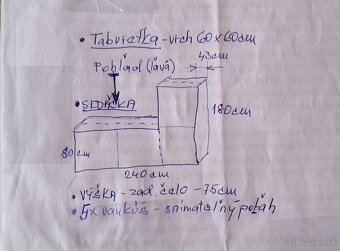 • Taburetka - vrch 60x60cm
43cm
Pohľad (ľavá)
• SEDAČKA
180cm
80cm
240cm
• VÝŠKA - zad. čelo - 75cm
• 5x vankúš - snímateľný poťah